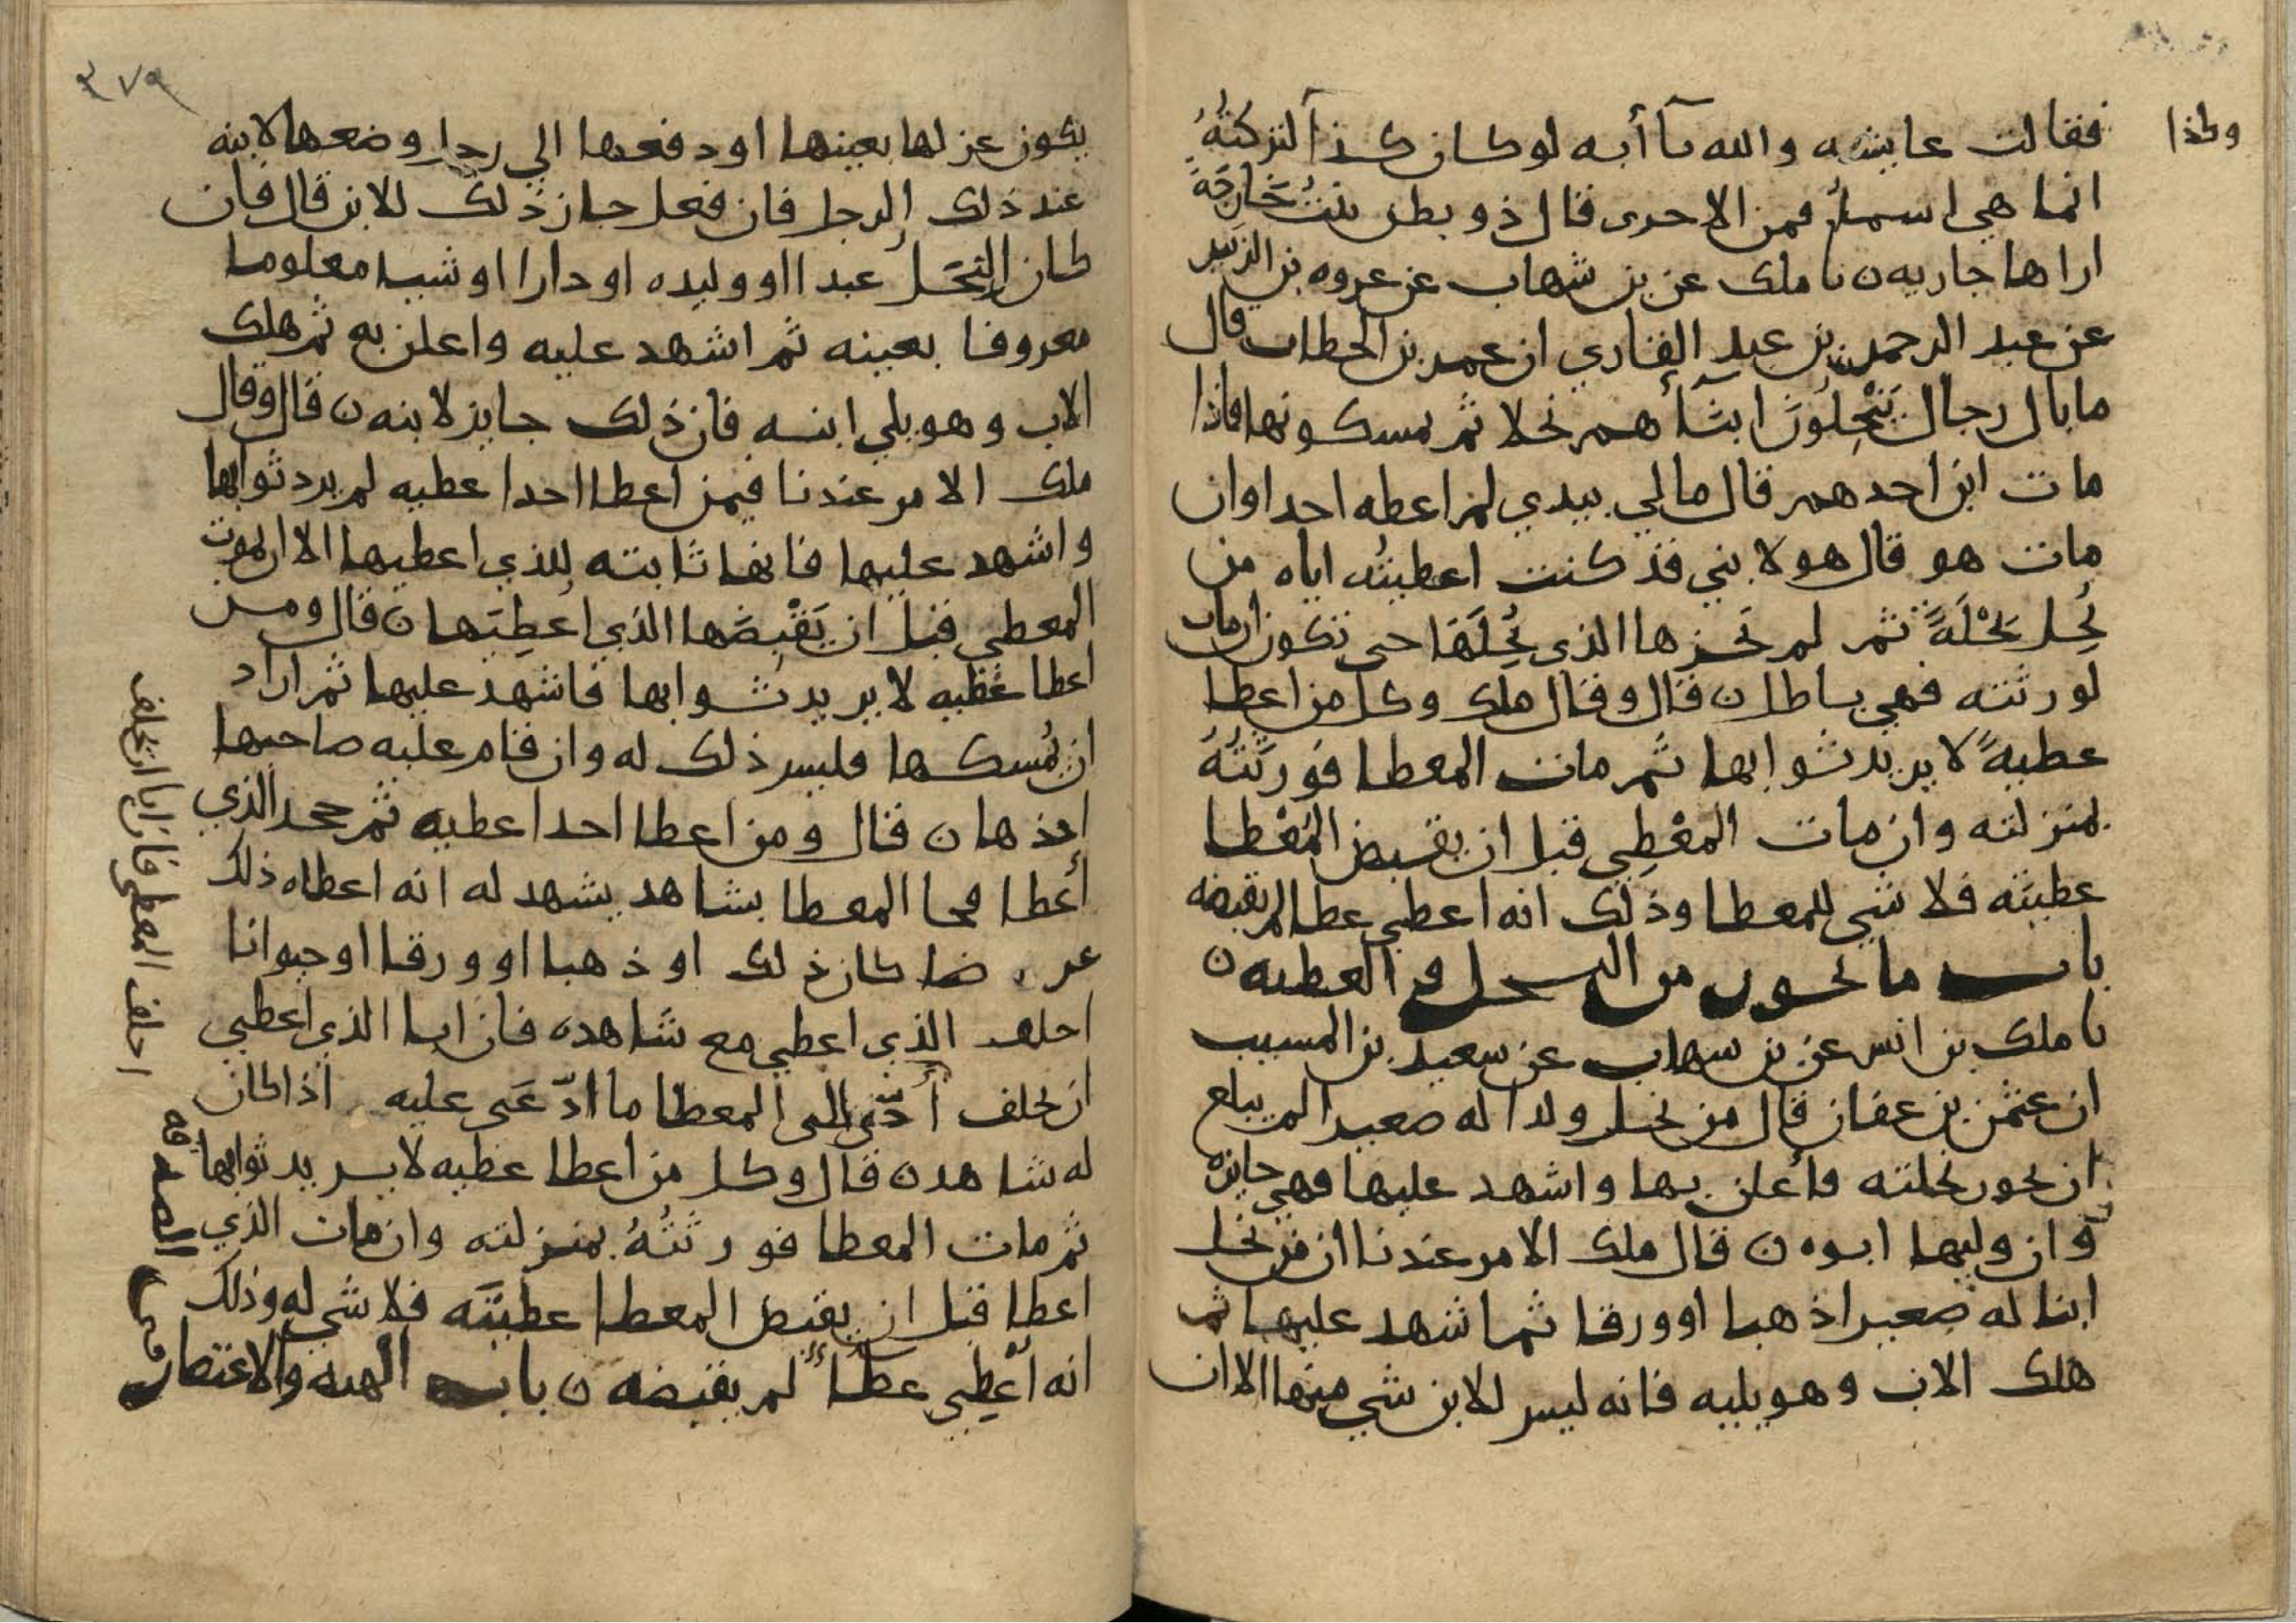 فقالت عايشه والله يا أبه لو كان كذا لتركتُهُ
وكذا
انما هي اسمآُ فمن الاخرى قال ذو بطن بنتُ خَارجَةَ
اراها جاريه ن نا ملك عن بن شهاب عن عروه بن الزبير
عن عبد الرحمن بن عبدٍ القاري ان عمر بن الخطاب قال
ما بال رجال يَنْحِلُونَ ابنآأهم نحلا ثم يمسكونها فاذا
مات ابن احدهم قال مالي بيدي لم اعطه احدا وان
مات هو قال هو لابني قد كنت اعطيتُه اياه من
نُحِل نحْلَةً ثم لم يَحُزها الذي نُحِلَهَا حتى تكون ان مات
لورثته فهي باطل ن قال وقال ملك وكل من اعطا
عطيهً لا يريد ثوابها ثم مات المعطا فوَرَثَتُهُ
بمنزلته وان مات المعْطِي قبل ان يقبض المُعْطا
عطيتَه فلا شي للمعطا وذلك انه اعطي عطا لم يقبضه
باب ما يجوز من النحل و العطيه ن
نا ملك بن انس عن بن شهاب عن سعيد بن المسيب
ان عثمن بن عفان قال من نحل ولدا له صغيرا لم يبلغ
ان يحوز نحلته فأعلن بها واشهد عليها فهي جايزه
وان وليها ابوه ن قال ملك الامر عندنا ان من نحل
ابنا له صغيرا ذهبا او ورقا ثم اشهد عليها ثم
هلك الاب وهو يليه فانه ليس للابن شي منها الا ان
٣٧٩
يكون عزلها بعينها او دفعها الي رجل وضعها لابنه
عند ذلك الرجل فان فعل جاز ذلك للابن قال فان
كان النحلُ عبدا او وليده او دارا او شيا معلوما
معروفا بعينه ثم اشهد عليه واعلن به ثم هلك
الاب وهو يلي ابنه فان ذلك جايز لابنه ن قال وقال
ملك الامر عندنا فيمن اعطا احدا عطيه لم يرد ثوابها
واشهد عليها فانها ثابته للذي اعطيها الا ان يموت
المعطي قبل ان يَقْبِضَها الذي اعُطِيَها ن قال ومن
اعطا عطيه لا يريد ثوابها فاشهد عليها ثم اراد
ان يُمسكها فليس ذلك له وان قام عليه صاحبها
اخذها ن قال ومن اعطا احدا عطيه ثم جحد الذي
أعطا فجا المعطا بشاهد يشهد له انه اعطاه ذلك
عرضا كان ذلك او ذهبا او ورقا او حيوانا
احلف الذي اعطي مع شاهده فان ابا الذي اعطي
ان يحلف أدّى الى المعطا ما ادّعَى عليه اذا كان
له شاهد ن قال وكل من اعطا عطيه لا يريد ثوابها
ثم مات المعطا فورثَتُهُ بمنزلته وان مات الذي
اعطا قبل ان يقبض المعطا عطيتَه فلا شي له وذلك
انه أُعْطِي عطآً لم يقبضه ن باب الهبه والاعتصار في
الصدقه
احلف المعطي فان ابا ان يحلف